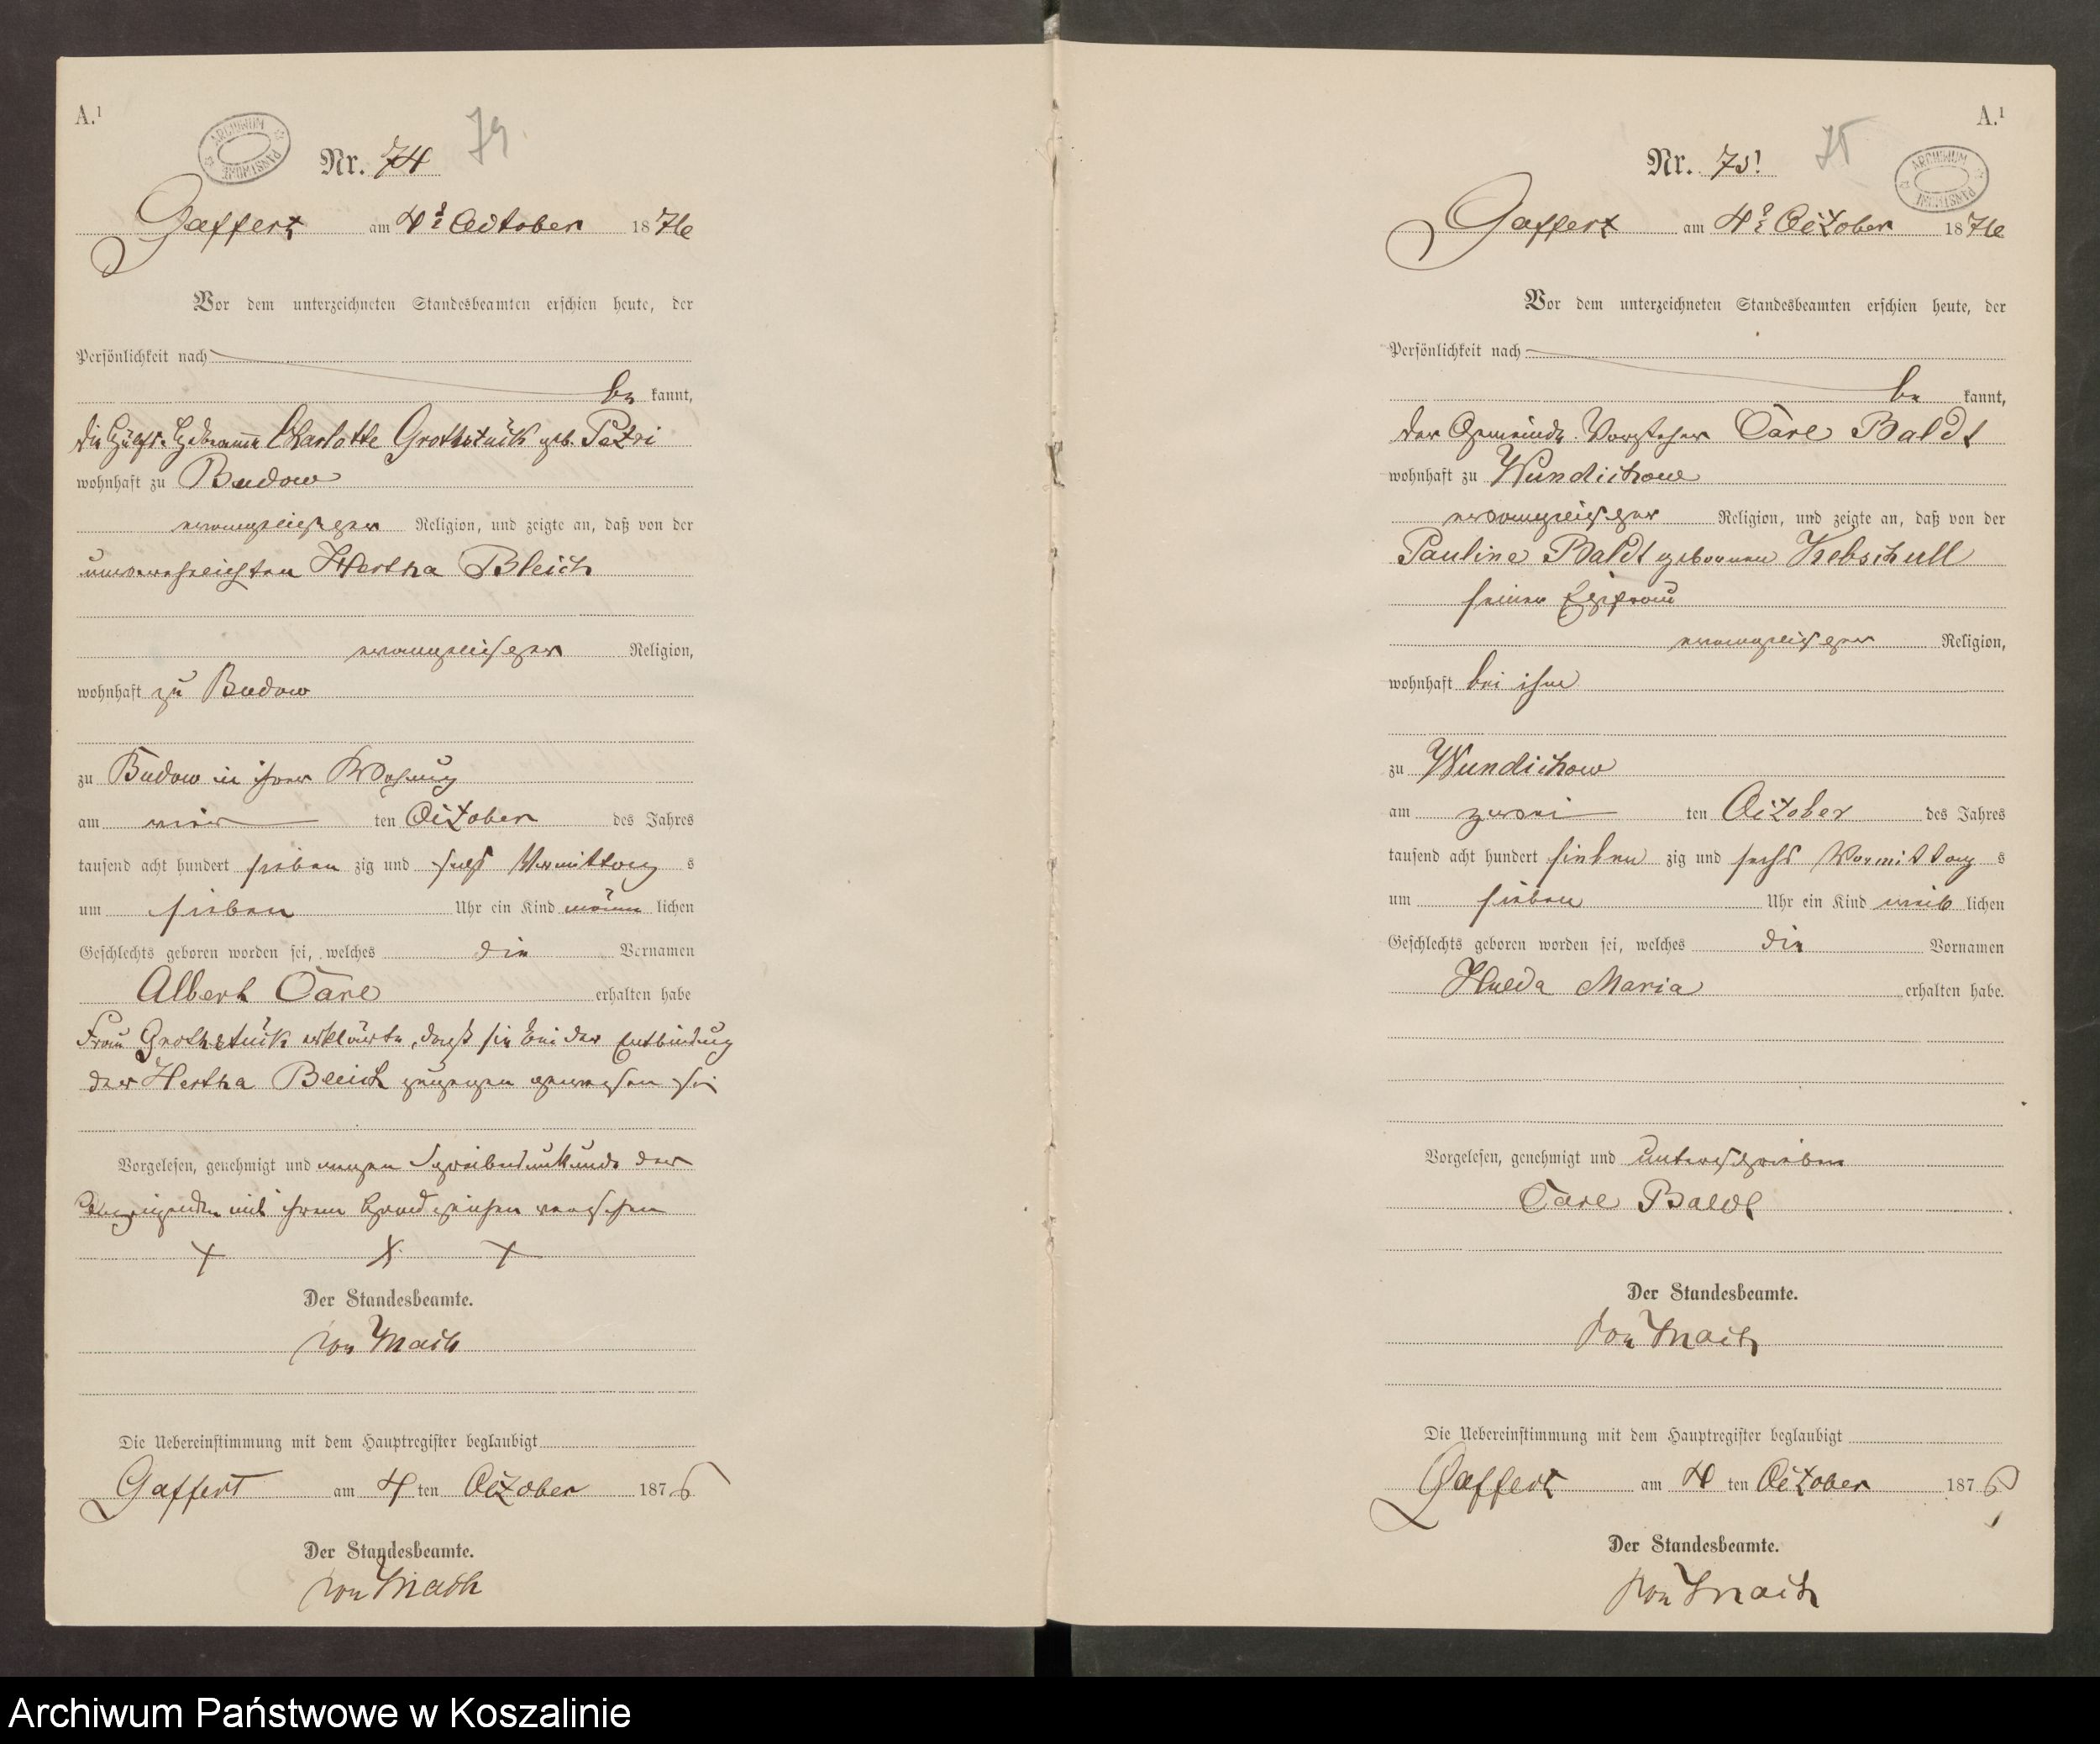 A.¹
ARCHIWUM PAŃSTWOWE
Nr. 74
74.
Gaffert am 4t October 1876
Vor dem unterzeichneten Standesbeamten erschien heute, der
Persönlichkeit nach
be kannt,
die Hülfs-Hebeamme Charlotte Grothstück geb. Petri
wohnhaft zu Budow
evangelischer Religion, und zeigte an, daß von der
unverehelichten Hertha Bleich
evangelischer Religion,
wohnhaft zu Budow
zu Budow in ihrer Wohnung
am vier ten October des Jahres
tausend acht hundert sieben zig und sechs Vormittag s
um sieben Uhr ein Kind männ lichen
Geschlechts geboren worden sei, welches die Vornamen
Albert Carl erhalten habe
Frau Grothstück erklärte, daß sie bei der Entbindung
der Hertha Bleich zugegen gewesen sei
Vorgelesen, genehmigt und wegen Schreibensunkunde der
Anzeigenden mit ihrem Handzeichen versehen
+ + +
Der Standesbeamte.
von Mach
Die Uebereinstimmung mit dem Hauptregister beglaubigt
Gaffert am 4 ten October 1876
Der Standesbeamte.
von Mach
A.¹
ARCHIWUM PAŃSTWOWE
Nr. 75.
75
Gaffert am 4t October 1876
Vor dem unterzeichneten Standesbeamten erschien heute, der
Persönlichkeit nach
be kannt,
der Gemeinde-Vorsteher Carl Baldt
wohnhaft zu Wundichow
evangelischer Religion, und zeigte an, daß von der
Pauline Baldt geborenen Kebschull
seiner Ehefrau
evangelischer Religion,
wohnhaft bei ihm
zu Wundichow
am zwei ten October des Jahres
tausend acht hundert sieben zig und sechs Vormittag s
um sieben Uhr ein Kind weib lichen
Geschlechts geboren worden sei, welches die Vornamen
Hulda Maria erhalten habe.
Vorgelesen, genehmigt und unterschrieben
Carl Baldt
Der Standesbeamte.
von Mach
Die Uebereinstimmung mit dem Hauptregister beglaubigt
Gaffert am 4 ten October 1876
Der Standesbeamte.
von Mach
Archiwum Państwowe w Koszalinie